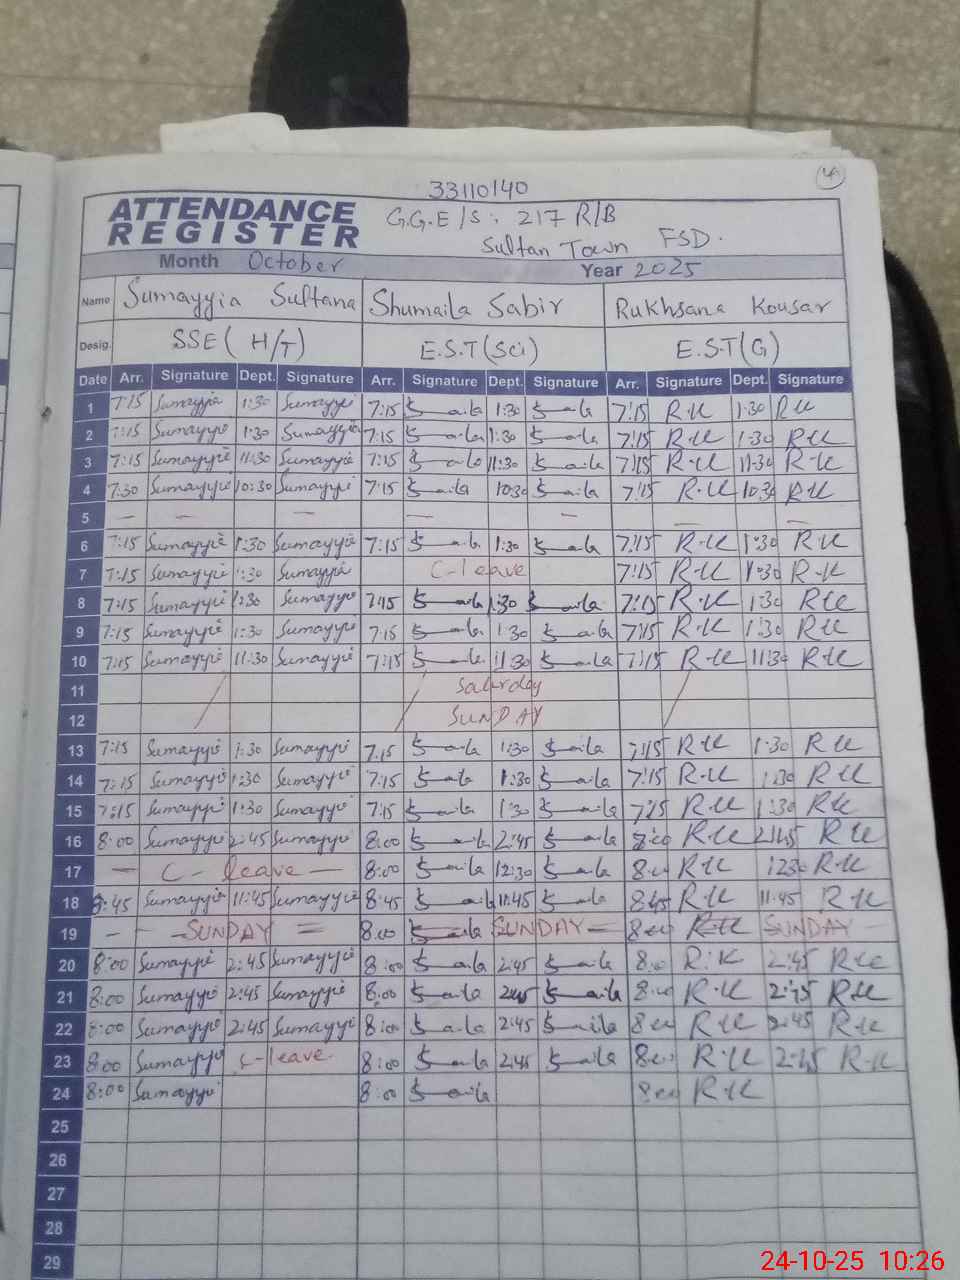 4
33110140
ATTENDANCE REGISTER G.G.E/S. 217 R/B
Sultan Town FSD.
Month October Year 2025
Name Sumayyia Sultana Shumaila Sabir Rukhsana Kousar
Desig. SSE (H/T) E.S.T (Sci) E.S.T (G)
Date Arr. Signature Dept. Signature Arr. Signature Dept. Signature Arr. Signature Dept. Signature
1 7:15 Sumayyia 1:30 Sumayyi 7:15 1:30 7:15 R.K 1:30 R.K
2 7:15 Sumayyi 1:30 Sumayyi 7:15 1:30 7:15 R.K 1:30 R.K
3 7:15 Sumayyi 11:30 Sumayyi 7:15 11:30 7:15 R.K 11:30 R.K
4 7:30 Sumayyi 10:30 Sumayyi 7:15 10:30 7:15 R.K 10:30 R.K
5 — — — — — — —
6 7:15 Sumayyi 1:30 Sumayyi 7:15 1:30 7:15 R.K 1:30 R.K
7 7:15 Sumayyi 1:30 Sumayyia C-leave 7:15 R.K 1:30 R.K
8 7:15 Sumayyi 1:30 Sumayyi 7:15 1:30 7:15 R.K 1:30 R.K
9 7:15 Sumayyi 1:30 Sumayyi 7:15 1:30 7:15 R.K 1:30 R.K
10 7:15 Sumayyi 11:30 Sumayyi 7:15 11:30 7:15 R.K 11:30 R.K
11 Saturday
12 SUNDAY
13 7:15 Sumayyi 1:30 Sumayyi 7:15 1:30 7:15 R.K 1:30 R.K
14 7:15 Sumayyi 1:30 Sumayyi 7:15 1:30 7:15 R.K 1:30 R.K
15 7:15 Sumayyi 1:30 Sumayyi 7:15 1:30 7:15 R.K 1:30 R.K
16 8:00 Sumayyi 2:45 Sumayyi 8:00 2:45 8:00 R.K 2:45 R.K
17 — C-leave — 8:00 12:30 8:00 R.K 1230 R.K
18 8:45 Sumayyi 11:45 Sumayyi 8:45 11:45 8:45 R.K 11:45 R.K
19 — — SUNDAY = 8:00 SUNDAY — 8:00 R.K SUNDAY —
20 8:00 Sumayyi 2:45 Sumayyi 8:00 2:45 8:00 R.K 2:45 R.K
21 8:00 Sumayyi 2:45 Sumayyi 8:00 2:45 8:00 R.K 2:45 R.K
22 8:00 Sumayyi 2:45 Sumayyi 8:00 2:45 8:00 R.K 2:45 R.K
23 8:00 Sumayyi C-leave 8:00 2:45 8:00 R.K 2:45 R.K
24 8:00 Sumayyi 8:00 8:00 R.K
25
26
27
28
29
24-10-25 10:26